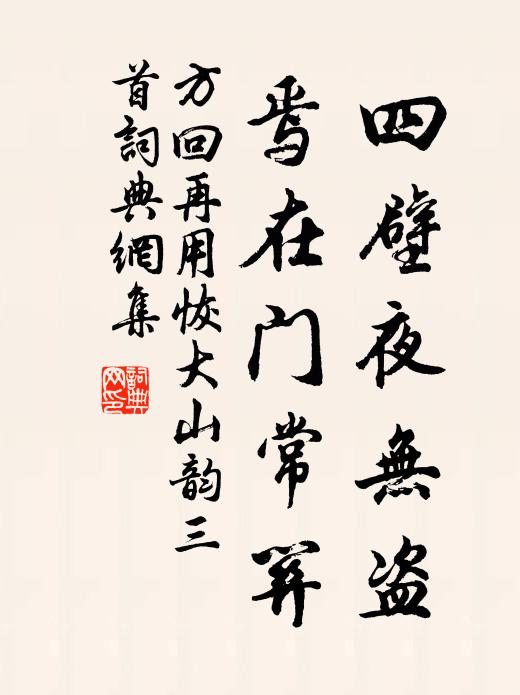 四壁夜無盗
焉在门常關
方回再用恢大山韵三
首詞典網集
詞典网印